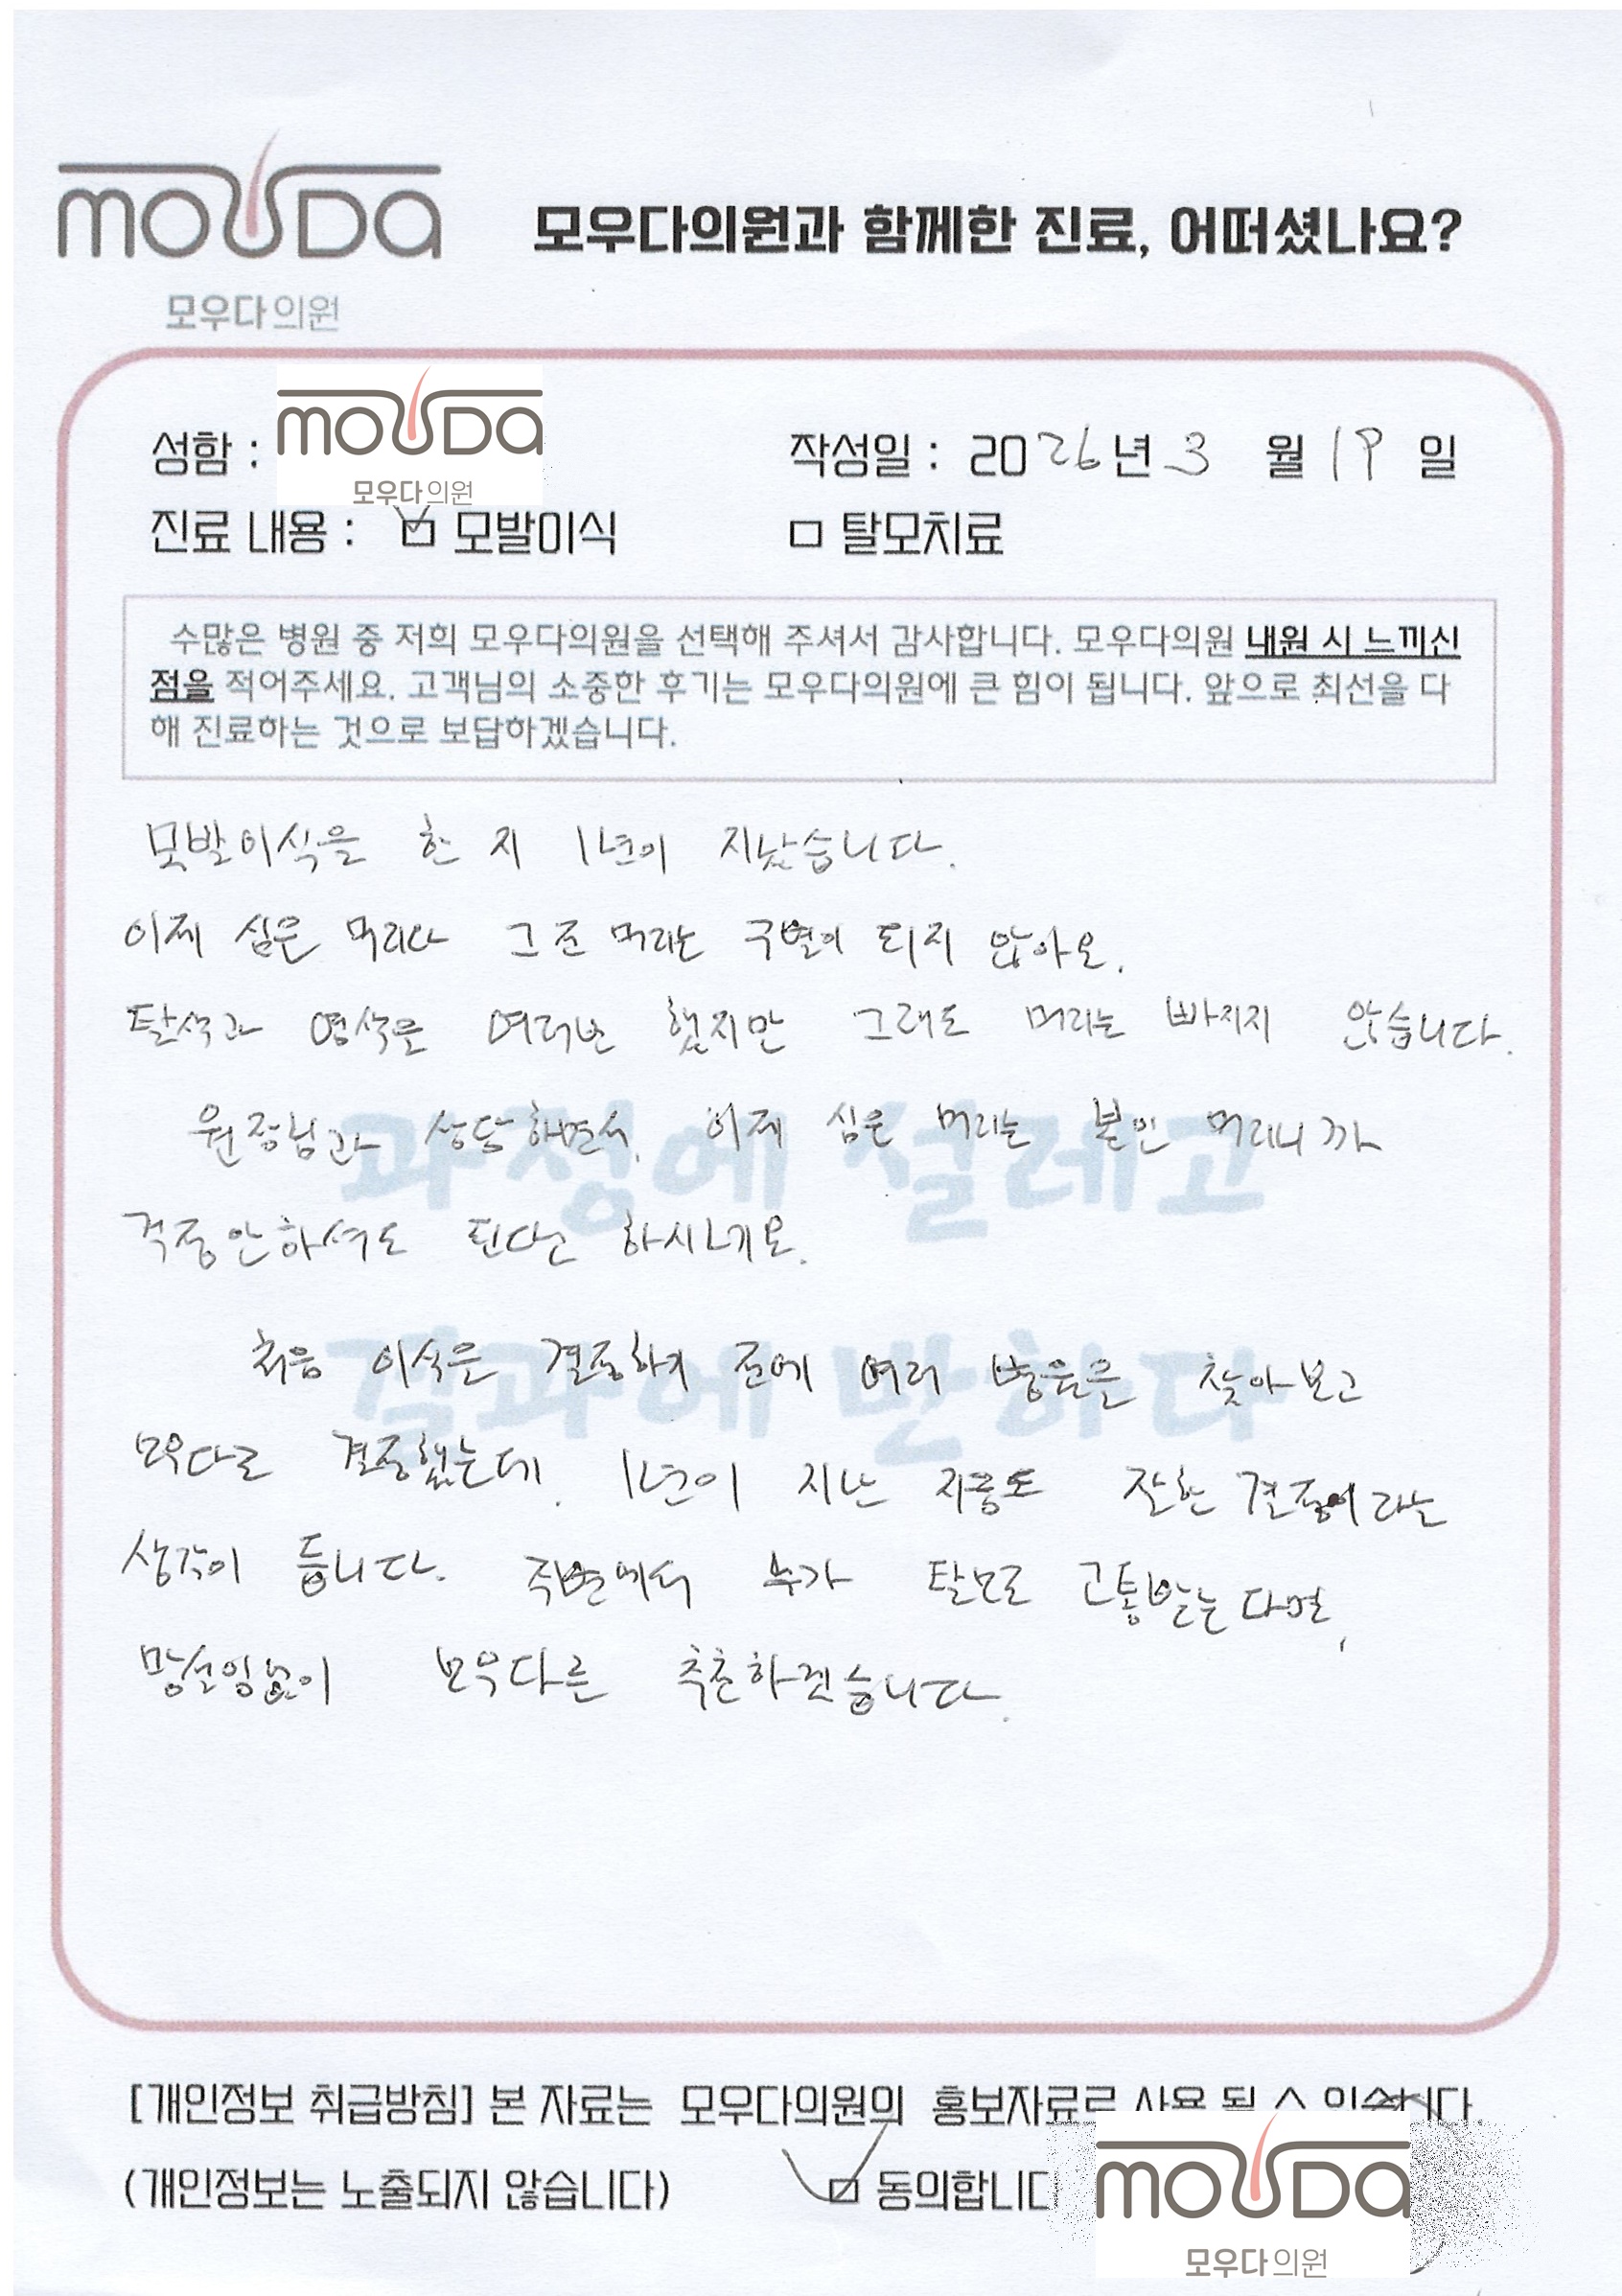 mouDa
모우다의원
모우다의원과 함께한 진료, 어떠셨나요?
mouDa
모우다의원
성함 :
작성일 : 2026년 3 월 19 일
진료 내용 : ☑ 모발이식 □ 탈모치료
수많은 병원 중 저희 모우다의원을 선택해 주셔서 감사합니다. 모우다의원 내원 시 느끼신
점을 적어주세요. 고객님의 소중한 후기는 모우다의원에 큰 힘이 됩니다. 앞으로 최선을 다
해 진료하는 것으로 보답하겠습니다.
모발이식을 한 지 1년이 지났습니다.
이제 심은 머리나 그 전 머리는 구별이 되지 않아요.
탈색과 염색을 여러번 했지만 그래도 머리는 빠지지 않습니다.
원장님과 상담하면서, 이제 심은 머리는 본인 머리니까
걱정안하셔도 된다고 하시네요.
처음 이식을 결정하기 전에 여러 병원을 찾아보고
모우다로 결정했는데, 1년이 지난 지금도 잘한 결정이라는
생각이 듭니다. 주변에서 누가 탈모로 고통받는다면,
망설임없이 모우다를 추천하겠습니다.
과정에 설레고
결과에 반하다
[개인정보 취급방침] 본 자료는 모우다의원의 홍보자료로 사용 될 수 있습니다.
(개인정보는 노출되지 않습니다) ☑ 동의합니다
mouDa
모우다의원